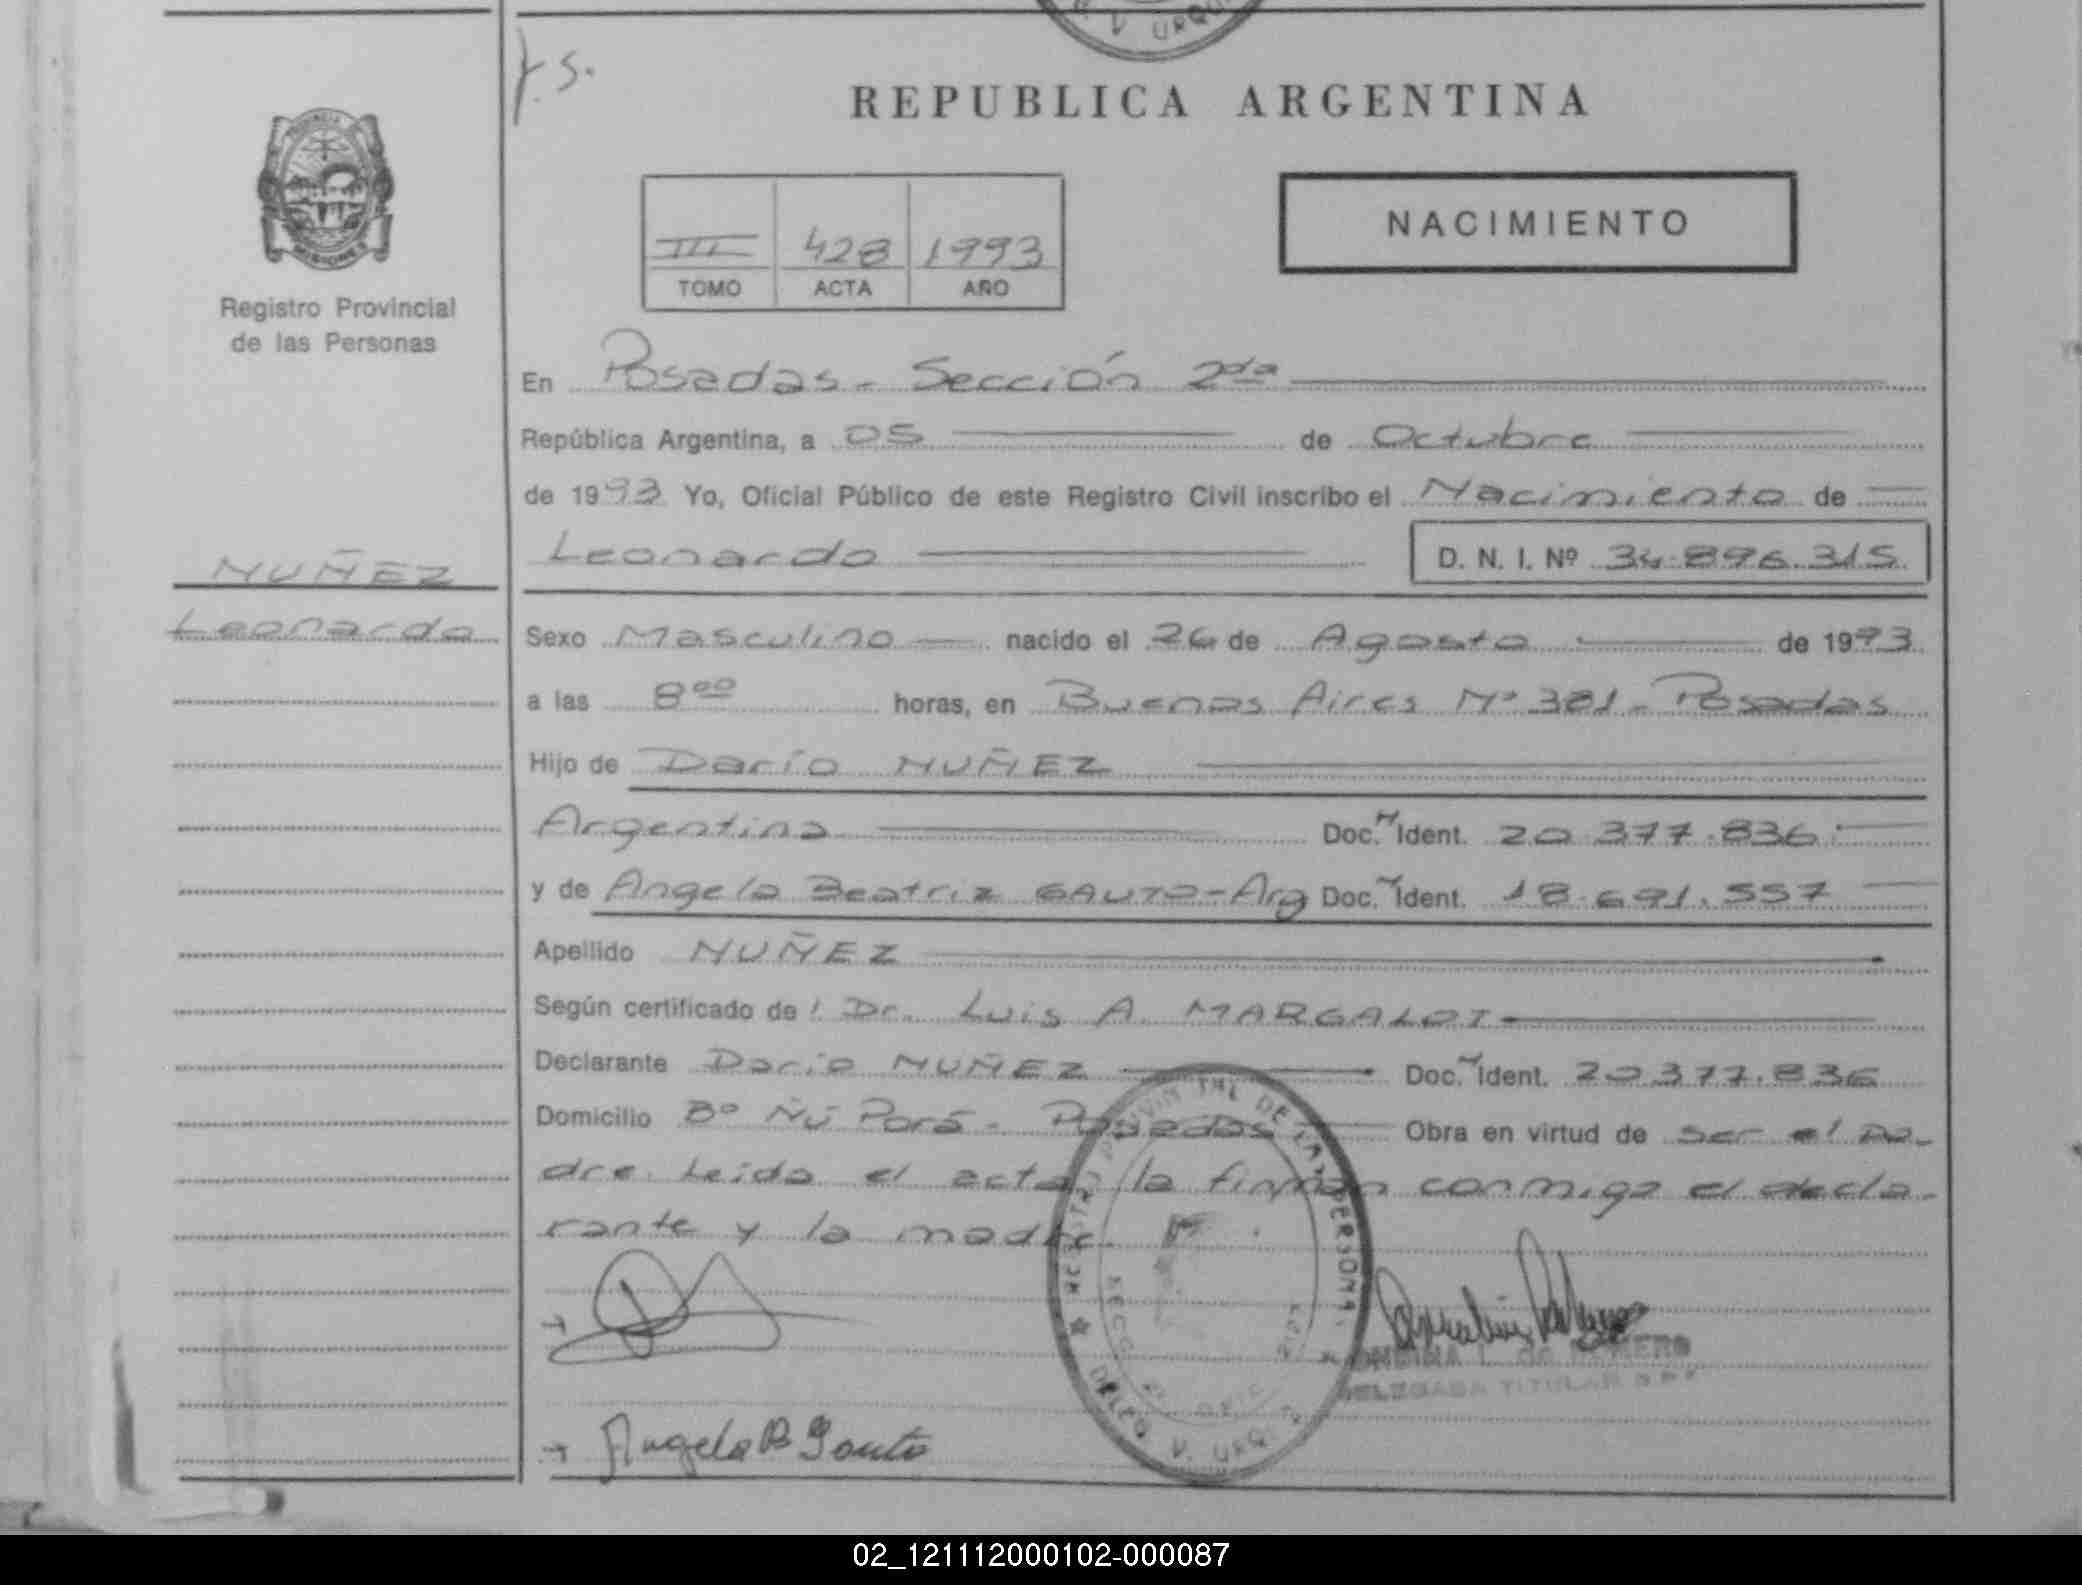 V. URQUI
J.S.
REPUBLICA ARGENTINA
PROVINCIA
MISIONES
Registro Provincial
de las Personas
III 428 1993
TOMO ACTA AÑO
NACIMIENTO
En Posadas - Sección 2da
República Argentina, a 05 de Octubre
de 1993 Yo, Oficial Público de este Registro Civil inscribo el Nacimiento de
Leonardo D. N. I. Nº 34.896.315
NUÑEZ
Leonardo
Sexo Masculino nacido el 26 de Agosto de 1993
a las 8⁰⁰ horas, en Buenas Aires Nº 381 - Posadas
Hijo de Darío NUÑEZ
Argentina Doc. Ident. 20.377.836
y de Angela Beatriz GAUTO - Arg Doc. Ident. 18.691.557
Apellido NUÑEZ
Según certificado de Dr. Luis A. MARGALOT
Declarante Darío NUÑEZ Doc. Ident. 20.377.836
Domicilio Bº Ñú Porá - Posadas Obra en virtud de ser el pa-
dre. Leída el acta, la firman conmigo el decla-
rante y la madre.
DE LAS PERSONAS
V. URQUI
DELEGADA TITULAR
Angela B Gauto
02_121112000102-000087